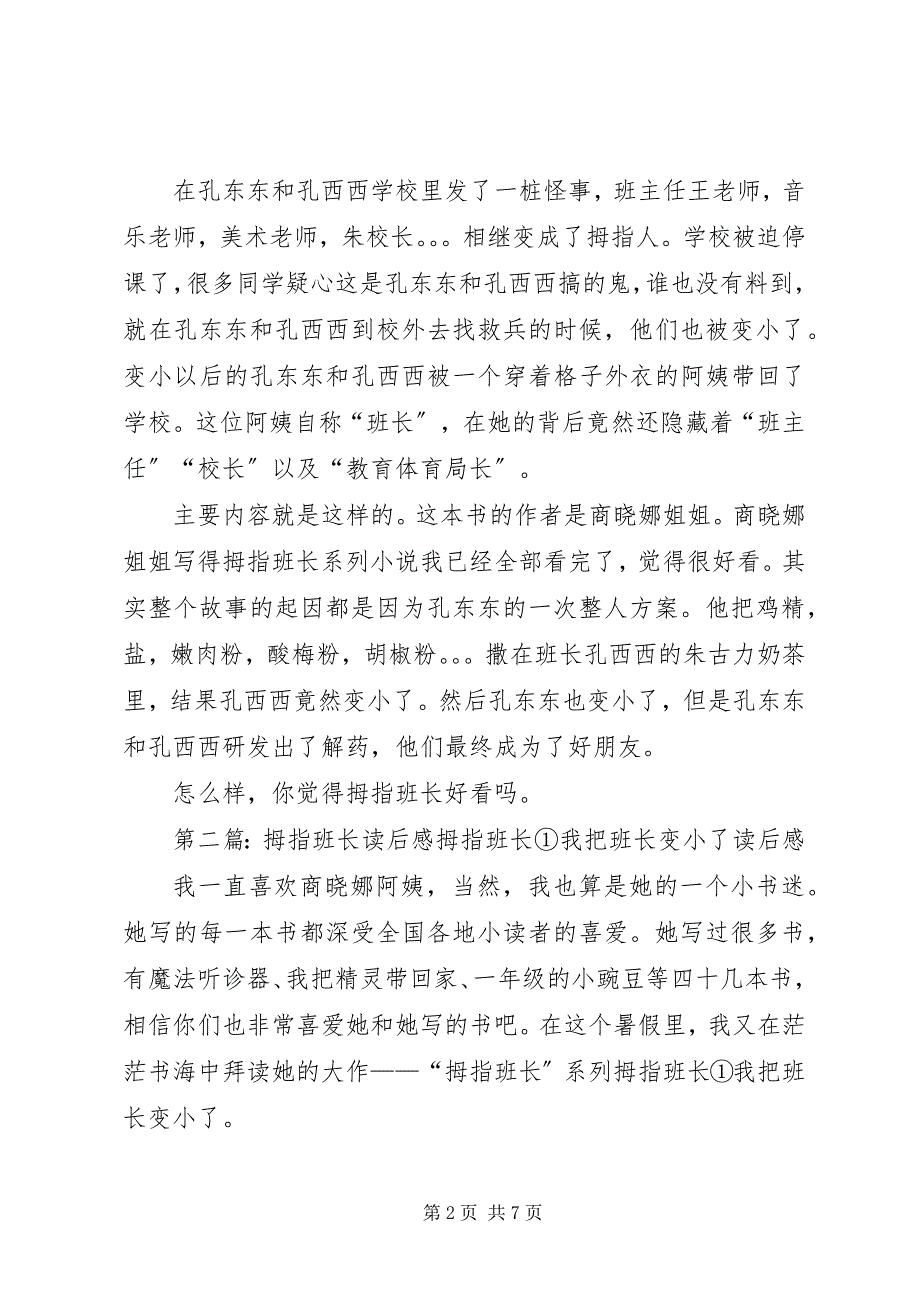 在孔东东和孔西西学校里发了一桩怪事，班主任王老师，音
乐老师，美术老师，朱校长。。。相继变成了拇指人。学校被迫停
课了，很多同学疑心这是孔东东和孔西西搞的鬼，谁也没有料到，
就在孔东东和孔西西到校外去找救兵的时候，他们也被变小了。
变小以后的孔东东和孔西西被一个穿着格子外衣的阿姨带回了
学校。这位阿姨自称“班长〞，在她的背后竟然还隐藏着“班主
任〞“校长〞以及“教育体育局长〞。
主要内容就是这样的。这本书的作者是商晓娜姐姐。商晓娜
姐姐写得拇指班长系列小说我已经全部看完了，觉得很好看。其
实整个故事的起因都是因为孔东东的一次整人方案。他把鸡精，
盐，嫩肉粉，酸梅粉，胡椒粉。。。撒在班长孔西西的朱古力奶茶
里，结果孔西西竟然变小了。然后孔东东也变小了，但是孔东东
和孔西西研发出了解药，他们最终成为了好朋友。
怎么样，你觉得拇指班长好看吗。
第二篇：拇指班长读后感拇指班长①我把班长变小了读后感
我一直喜欢商晓娜阿姨，当然，我也算是她的一个小书迷。
她写的每一本书都深受全国各地小读者的喜爱。她写过很多书，
有魔法听诊器、我把精灵带回家、一年级的小豌豆等四十几本书，
相信你们也非常喜爱她和她写的书吧。在这个暑假里，我又在茫
茫书海中拜读她的大作——“拇指班长〞系列拇指班长①我把班
长变小了。
第 2 页 共 7 页